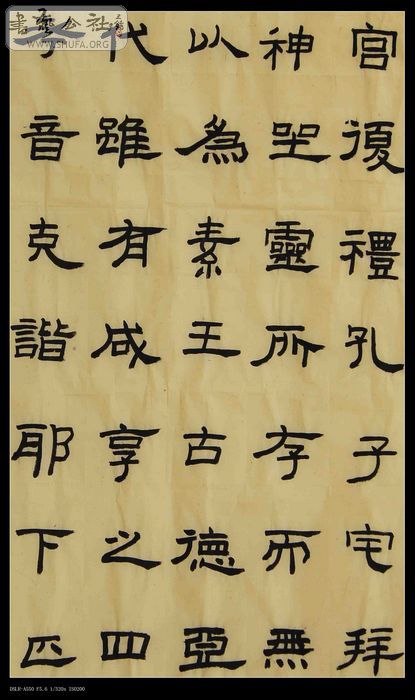 書藝公社
WWW.SHUFA.ORG
宫復禮孔子宅拜
神坐靈所存而無
以為素王古德亞
代雖有咸享之四
音克諧耶下匹
DSLR-A550 F5.6 1/320s ISO200